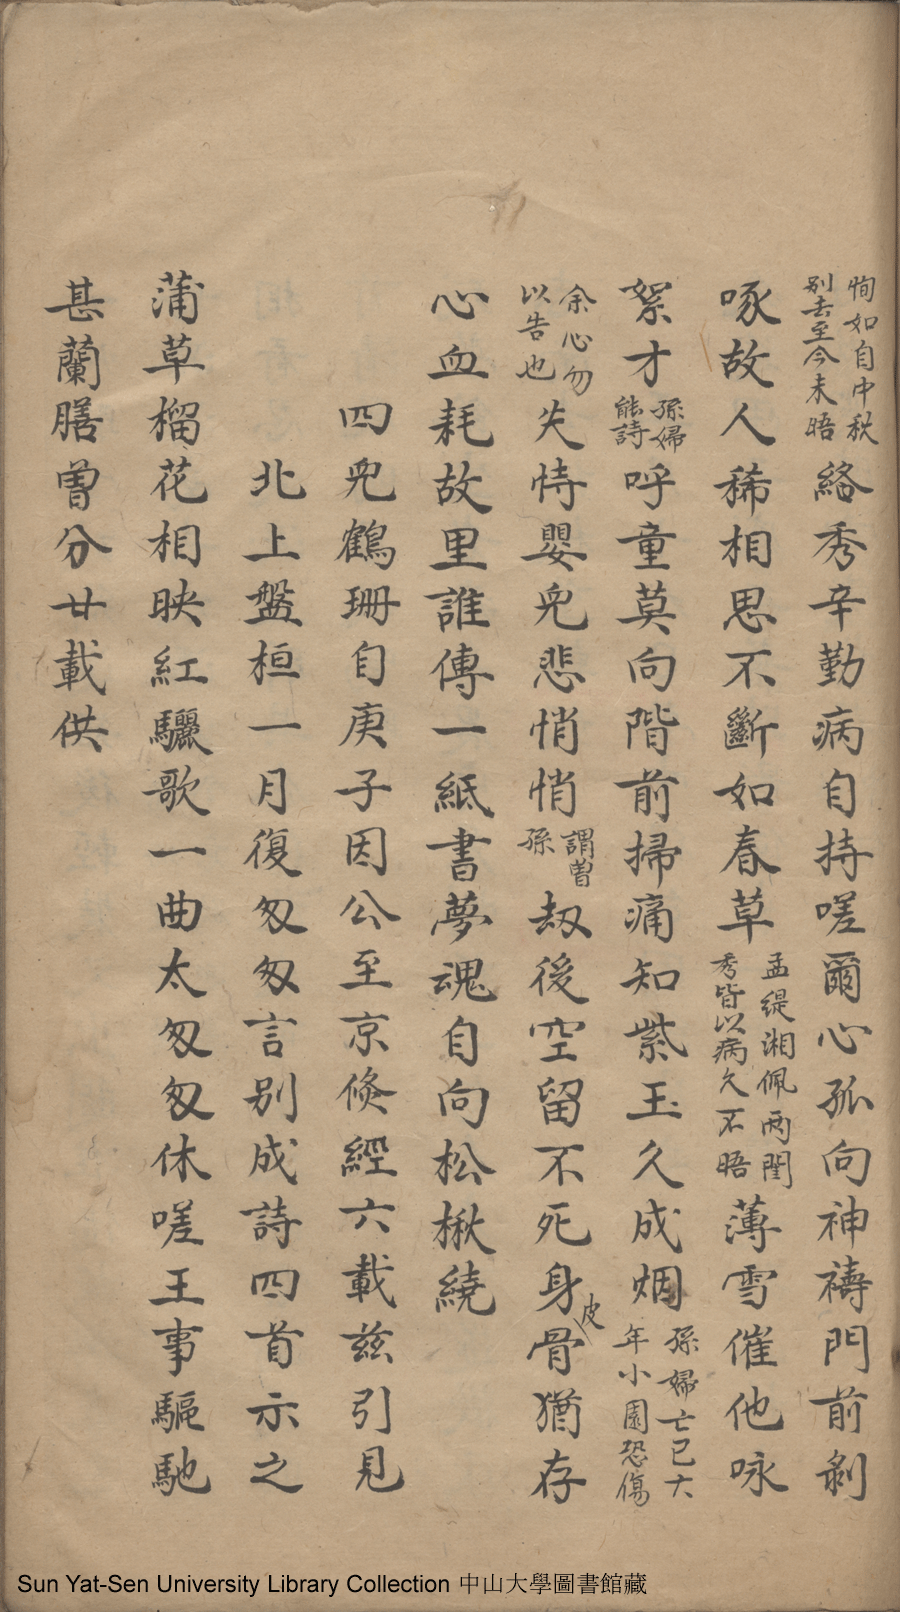 恂如自中秋别去至今未晤絡秀辛勤病自持嗟爾心孤向神禱門前剝
啄故人稀相思不斷如春草孟緹湘佩两閨秀皆以病久不晤薄雪催他咏
絮才孫婦能詩呼童莫向階前掃痛知紫玉久成烟孫婦亡已六年小園恐傷
余心勿以告也失恃嬰兒悲悄悄謂曾孫劫後空留不死身皮骨猶存
心血耗故里誰傳一紙書夢魂自向松楸繞
四兒鶴珊自庚子因公至京倐經六載兹引見
北上盤桓一月復匆匆言别成詩四首示之
蒲草榴花相映紅驪歌一曲太匆匆休嗟王事驅馳
甚蘭膳曾分廿載供
Sun Yat-Sen University Library Collection 中山大學圖書館藏